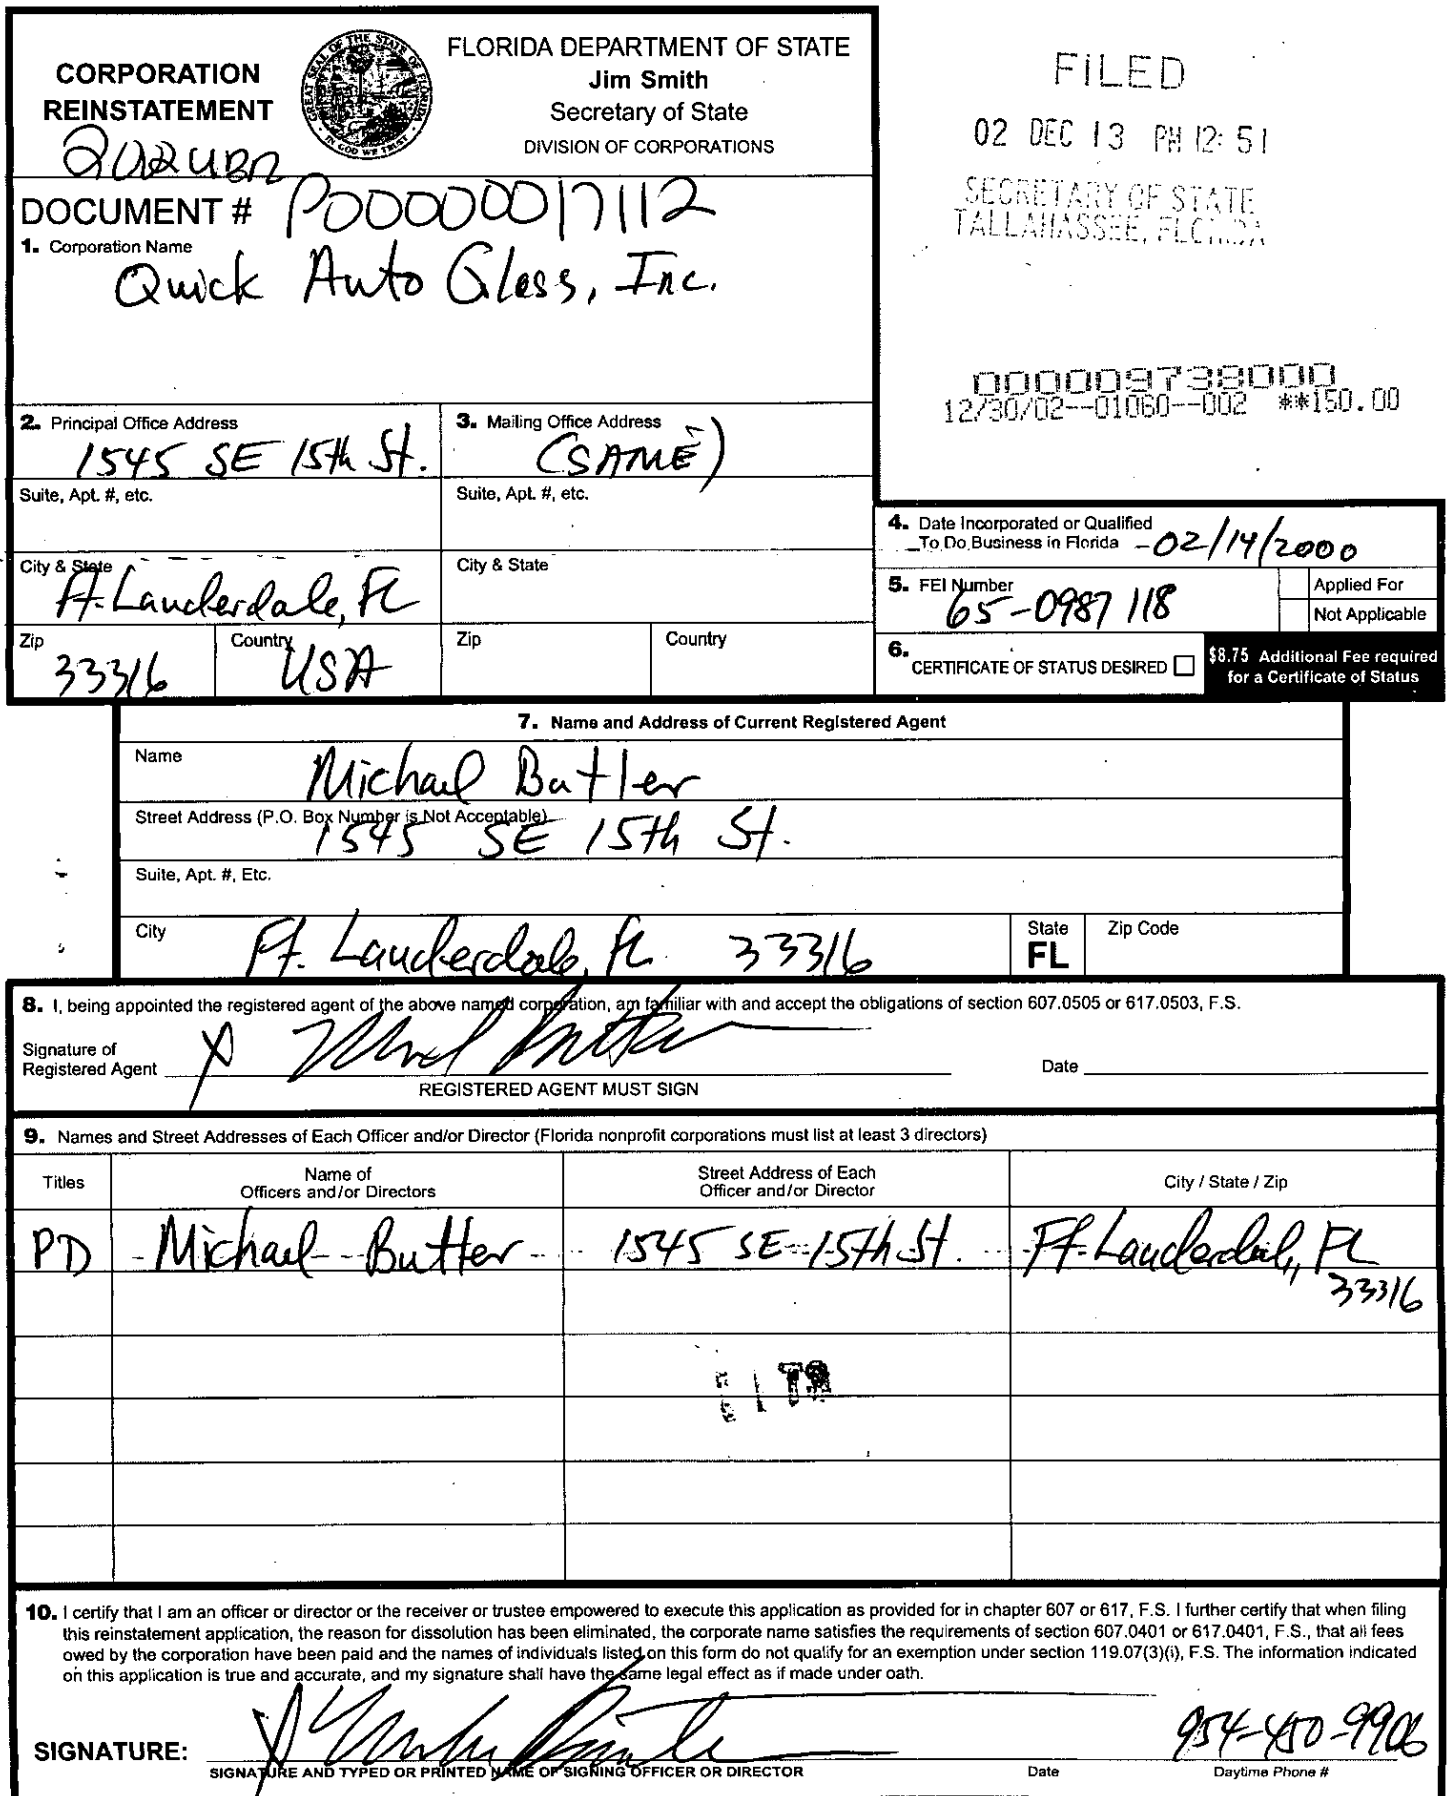 CORPORATION
REINSTATEMENT
FLORIDA DEPARTMENT OF STATE
Jim Smith
Secretary of State
DIVISION OF CORPORATIONS
GREAT SEAL OF THE STATE OF FLORIDA
IN GOD WE TRUST
FILED
02 DEC 13 PM 12:51
SECRETARY OF STATE
TALLAHASSEE, FLORIDA
DOCUMENT # P00000017112
1. Corporation Name
Quick Auto Glass, Inc.
000009738000
12/30/02--01060--002 **150.00
2. Principal Office Address
1545 SE 15th St.
3. Mailing Office Address
(SAME)
Suite, Apt. #, etc.
Suite, Apt. #, etc.
City & State
Ft. Lauderdale, FL
City & State
Zip
33316
Country
USA
Zip
Country
4. Date Incorporated or Qualified
To Do Business in Florida - 02/14/2000
5. FEI Number
65-0987118
Applied For
Not Applicable
6.
CERTIFICATE OF STATUS DESIRED
$8.75 Additional Fee required
for a Certificate of Status
7. Name and Address of Current Registered Agent
Name
Michael Butler
Street Address (P.O. Box Number is Not Acceptable)
1545 SE 15th St.
Suite, Apt. #, Etc.
City
Ft. Lauderdale, FL 33316
State
FL
Zip Code
8. I, being appointed the registered agent of the above named corporation, am familiar with and accept the obligations of section 607.0505 or 617.0503, F.S.
Signature of
Registered Agent X
Date
REGISTERED AGENT MUST SIGN
9. Names and Street Addresses of Each Officer and/or Director (Florida nonprofit corporations must list at least 3 directors)
Titles
Name of
Officers and/or Directors
Street Address of Each
Officer and/or Director
City / State / Zip
PD Michael Butter 1545 SE 15th St. Ft. Lauderdale, FL
33316
10. I certify that I am an officer or director or the receiver or trustee empowered to execute this application as provided for in chapter 607 or 617, F.S. I further certify that when filing
this reinstatement application, the reason for dissolution has been eliminated, the corporate name satisfies the requirements of section 607.0401 or 617.0401, F.S., that all fees
owed by the corporation have been paid and the names of individuals listed on this form do not qualify for an exemption under section 119.07(3)(i), F.S. The information indicated
on this application is true and accurate, and my signature shall have the same legal effect as if made under oath.
SIGNATURE: X
954-450-9906
SIGNATURE AND TYPED OR PRINTED NAME OF SIGNING OFFICER OR DIRECTOR
Date
Daytime Phone #